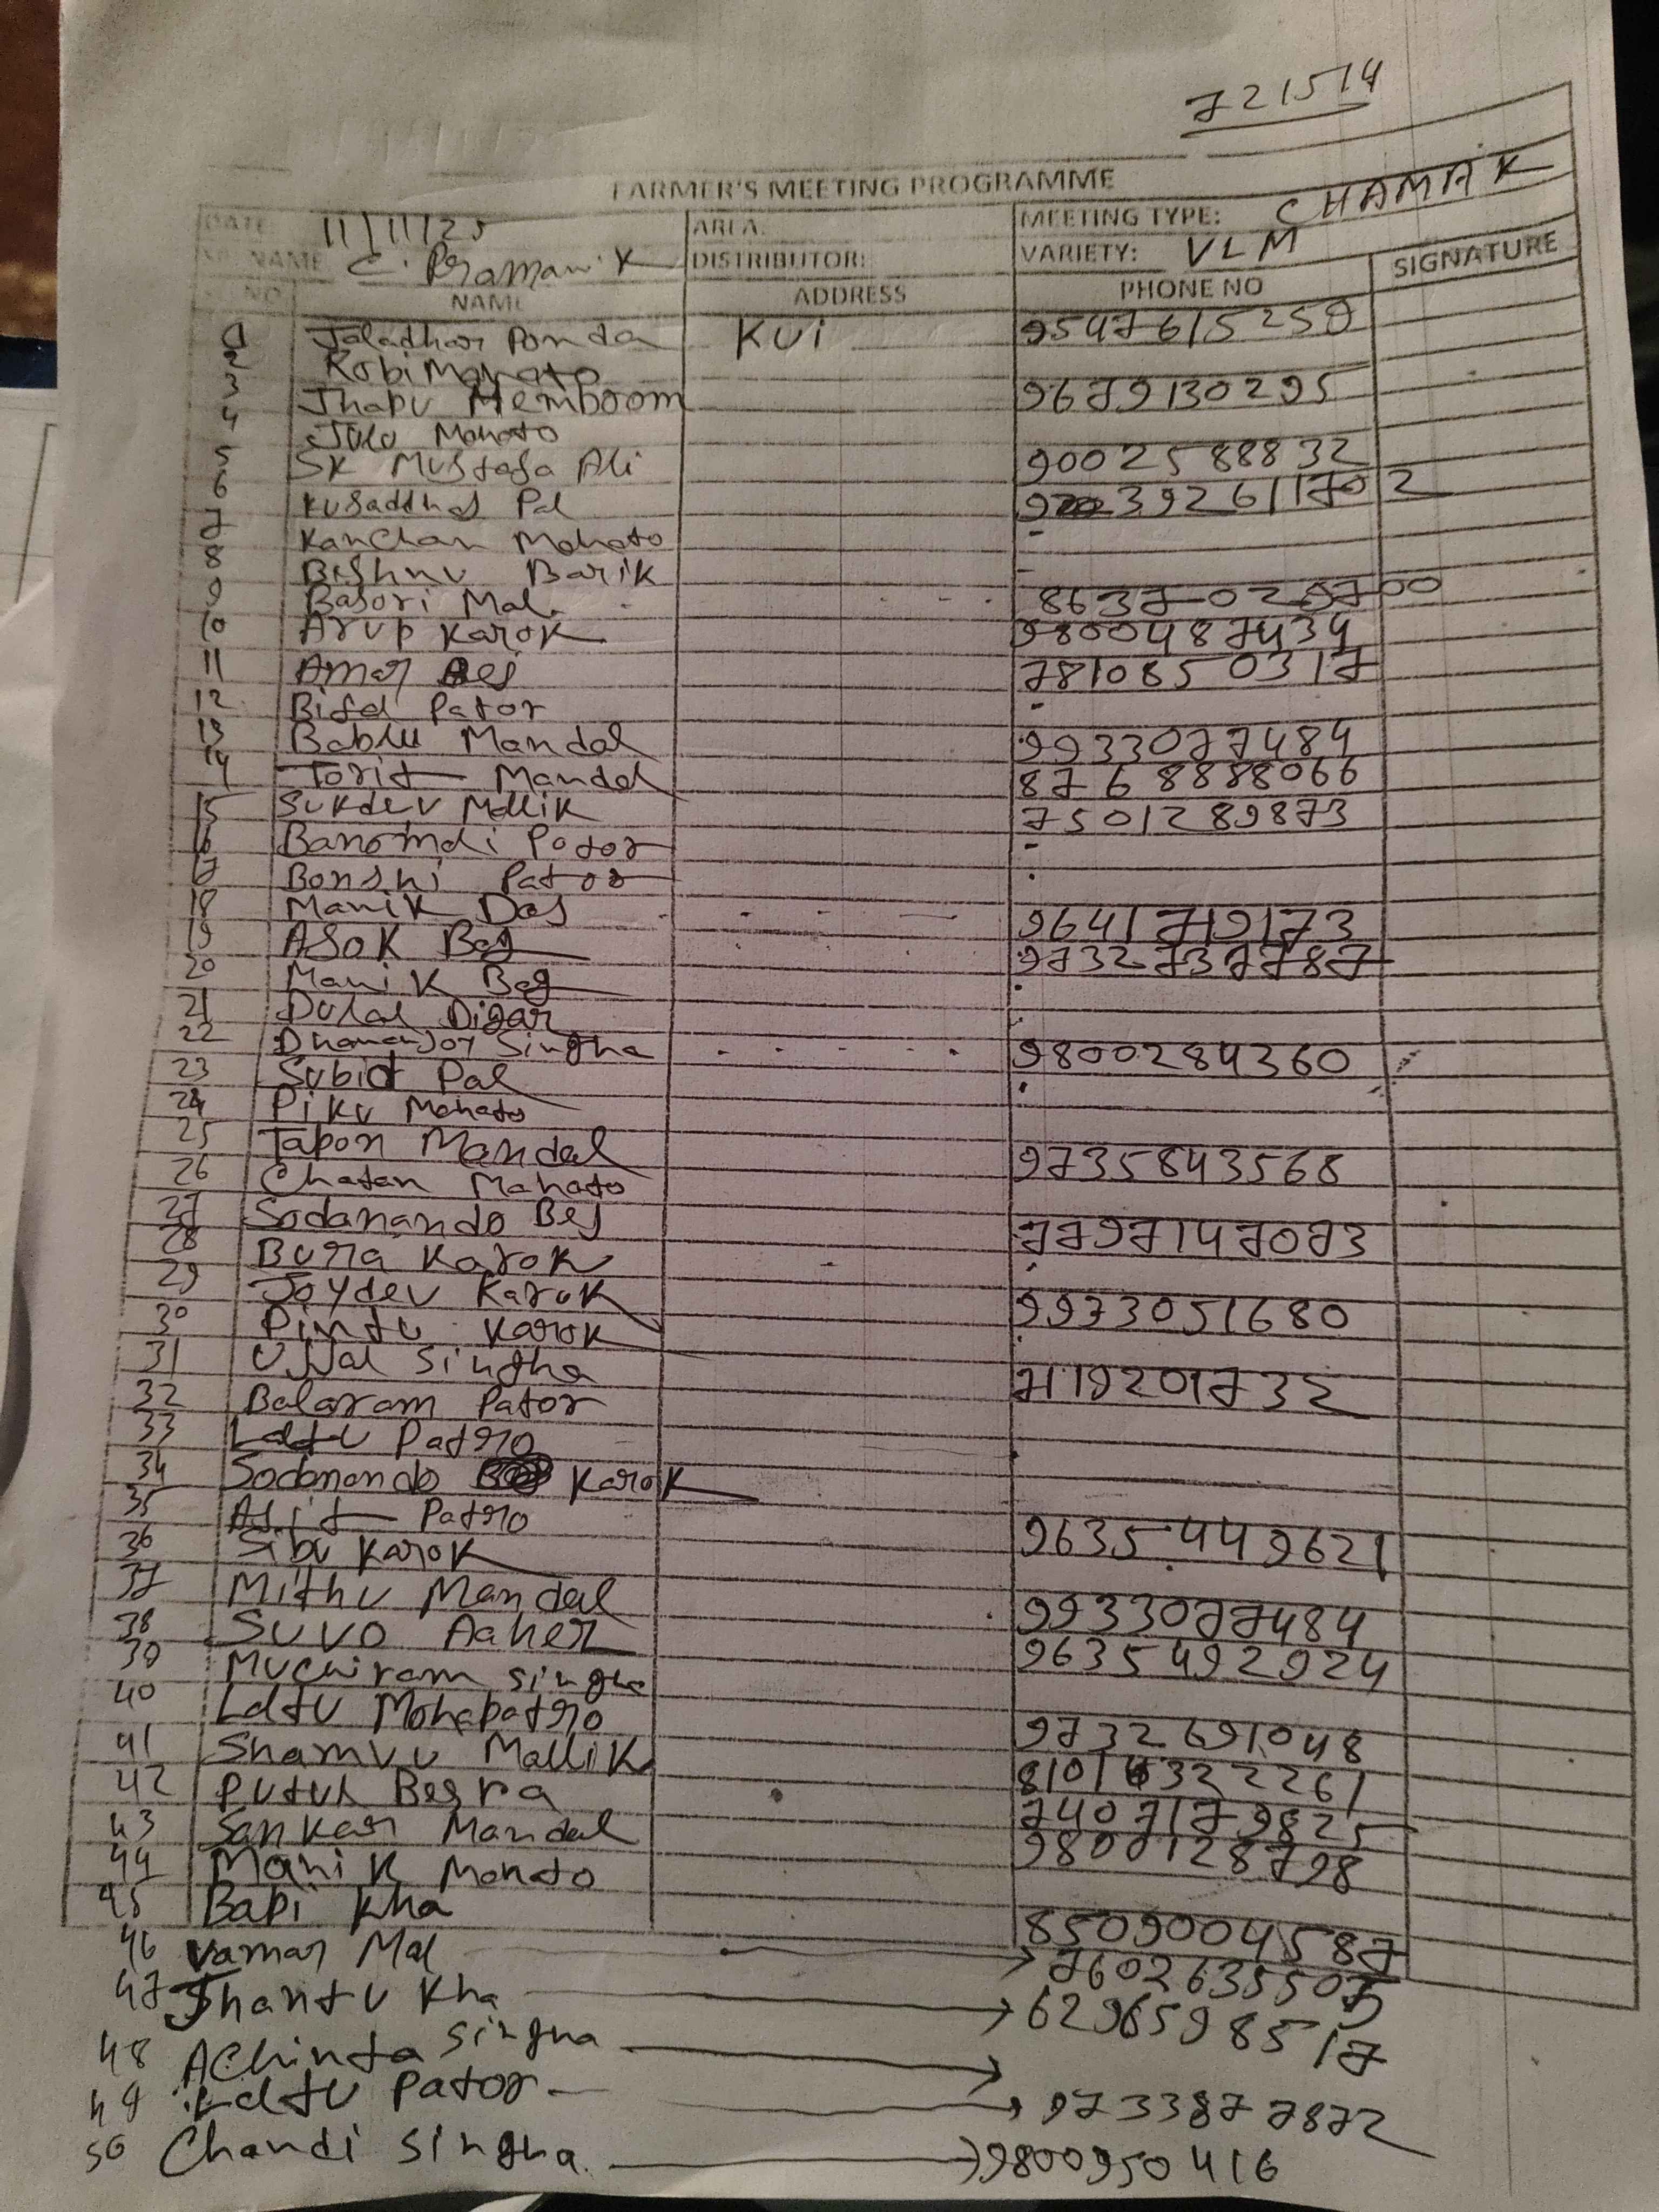 721514
FARMER'S MEETING PROGRAMME
DATE 11/11/25 AREA: MEETING TYPE: CHAMAK
NAME C. Pramanik DISTRIBUTOR: VARIETY: VLM
NO NAME ADDRESS PHONE NO SIGNATURE
1 Jaladhar Ponda KUi 9547615259
2 Robi Mahato
3 Jhapu Memboom 9679130295
4 Julu Mahato
5 SK Mustafa Ali 9002588832
6 Pal
7 Kanchan Mahato -
8 Bishnu Barik -
9 Basori Mal
10 Arup Karok 9800487434
11 Amar 7810850317
12 Pator -
13 Bablu Mandal 9933077484
14 Torit Mandal 8768888066
15 Sukdev Mallik 7501289873
16 Pator -
17 Bonshi Pator
18 Manik Das 9641719173
19 ASOK Bag 9732737787
20 Manik Bag
21 Dulal Digar
22 Dhananjoy Singha 9800284360
23 Subid Pal
24 Piku Mahato
25 Tapon Mandal 9735843568
26 Chatan Mahato
27 Sodanando Bej 7797147073
28 Bura Karok
29 Joydev Karok 9973051680
30 Pintu Karok
31 Ujjal Singha 7119201732
32 Balaram Pator
33 Laltu Patro
34 Sodanando Karok
35 Asit Patro
36 Sibu Karok 9635449621
37 Mithu Mandal 9933077484
38 Suvo 9635492924
39 Muchiram Singha
40 Laltu Mohapatro 9732691048
41 Shamvu Mallik
42 Putul Besra 7407179825
43 Sankar Mandal 9800128798
44 Manik Mahato
45 Bapi Kha 8509004587
46 Mal
47 Jhantu Kha 6296598517
48 Achinta Singha
49 Laltu Pator 9733877872
50 Chandi Singha 9800950416